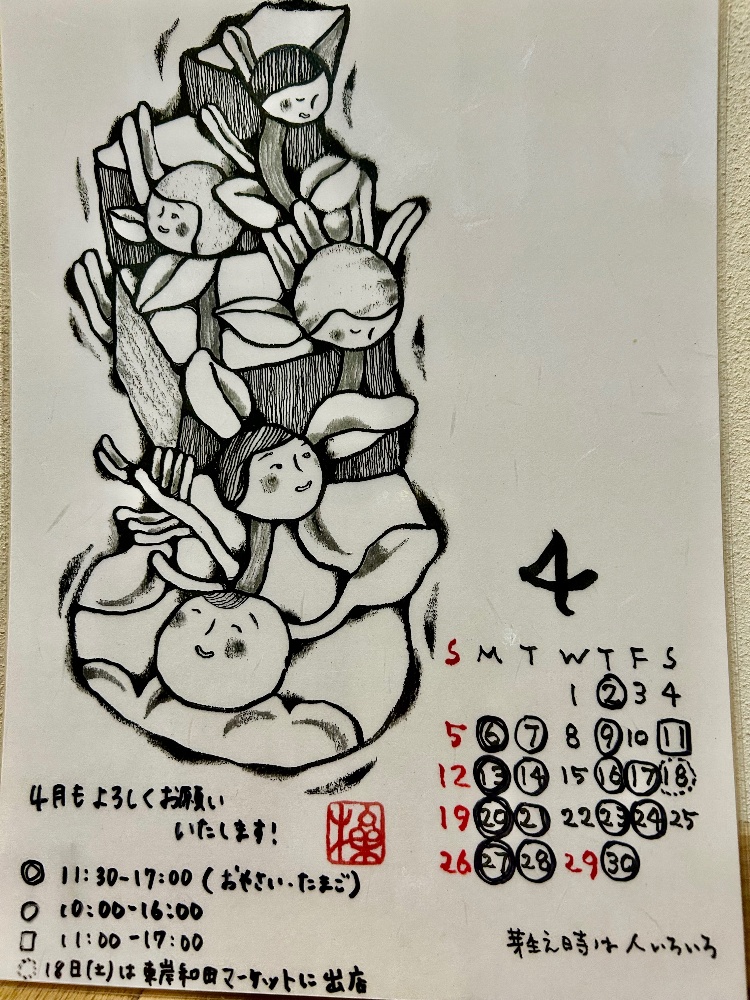 4
S M T W T F S
1 2 3 4
5 6 7 8 9 10 11
12 13 14 15 16 17 18
19 20 21 22 23 24 25
26 27 28 29 30
4月もよろしくお願い
いたします!
操
◎ 11:30-17:00 (おやさい・たまご)
○ 10:00-16:00
□ 11:00-17:00
18日(土)は 東岸和田マーケットに出店
芽生え時は人いろいろ